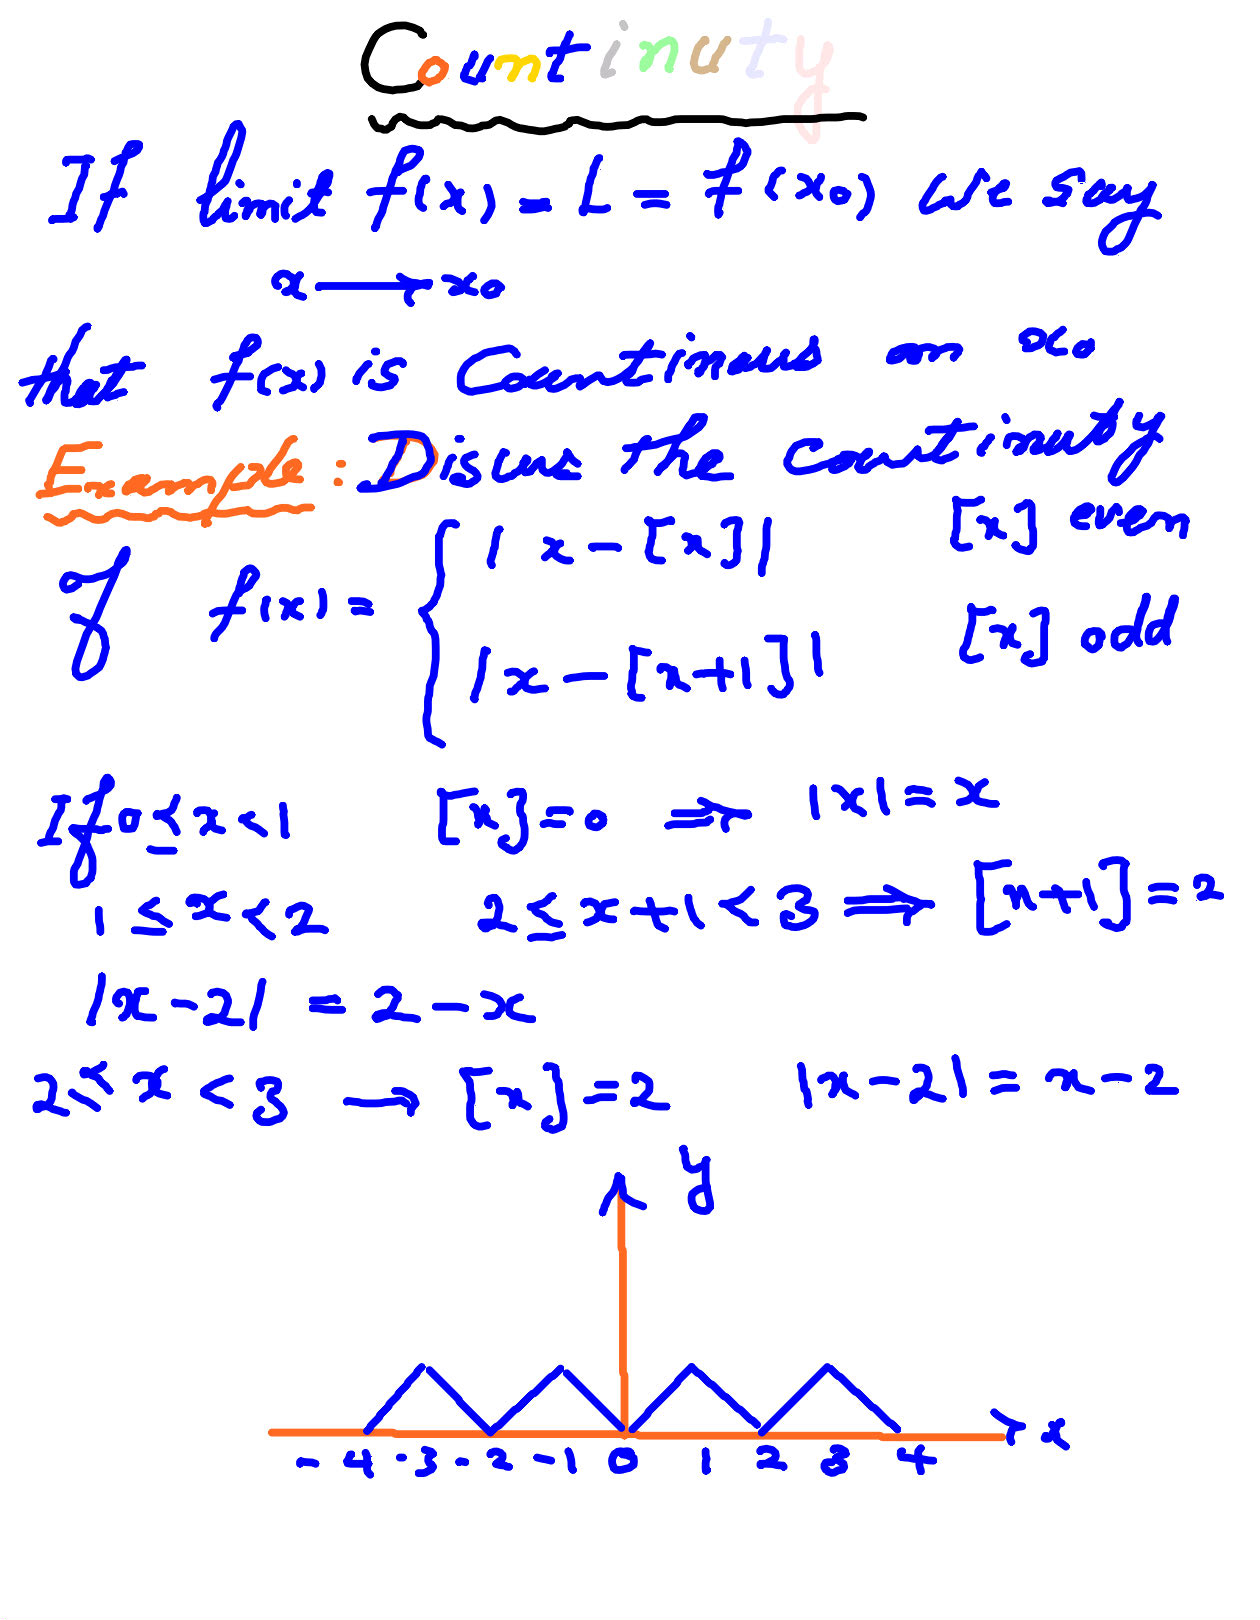 Countinuty
If limit f(x) = L = f(x₀) we say
x → x₀
that f(x) is Countinous on x₀
Example: Discus the countinuty
of f(x) = { |x - [x]| [x] even
|x - [x+1]| [x] odd
If 0 ≤ x < 1 [x] = 0 ⇒ |x| = x
1 ≤ x < 2 2 ≤ x + 1 < 3 ⇒ [x+1] = 2
|x - 2| = 2 - x
2 < x < 3 → [x] = 2 |x - 2| = x - 2
y
-4 -3 -2 -1 0 1 2 3 4 x